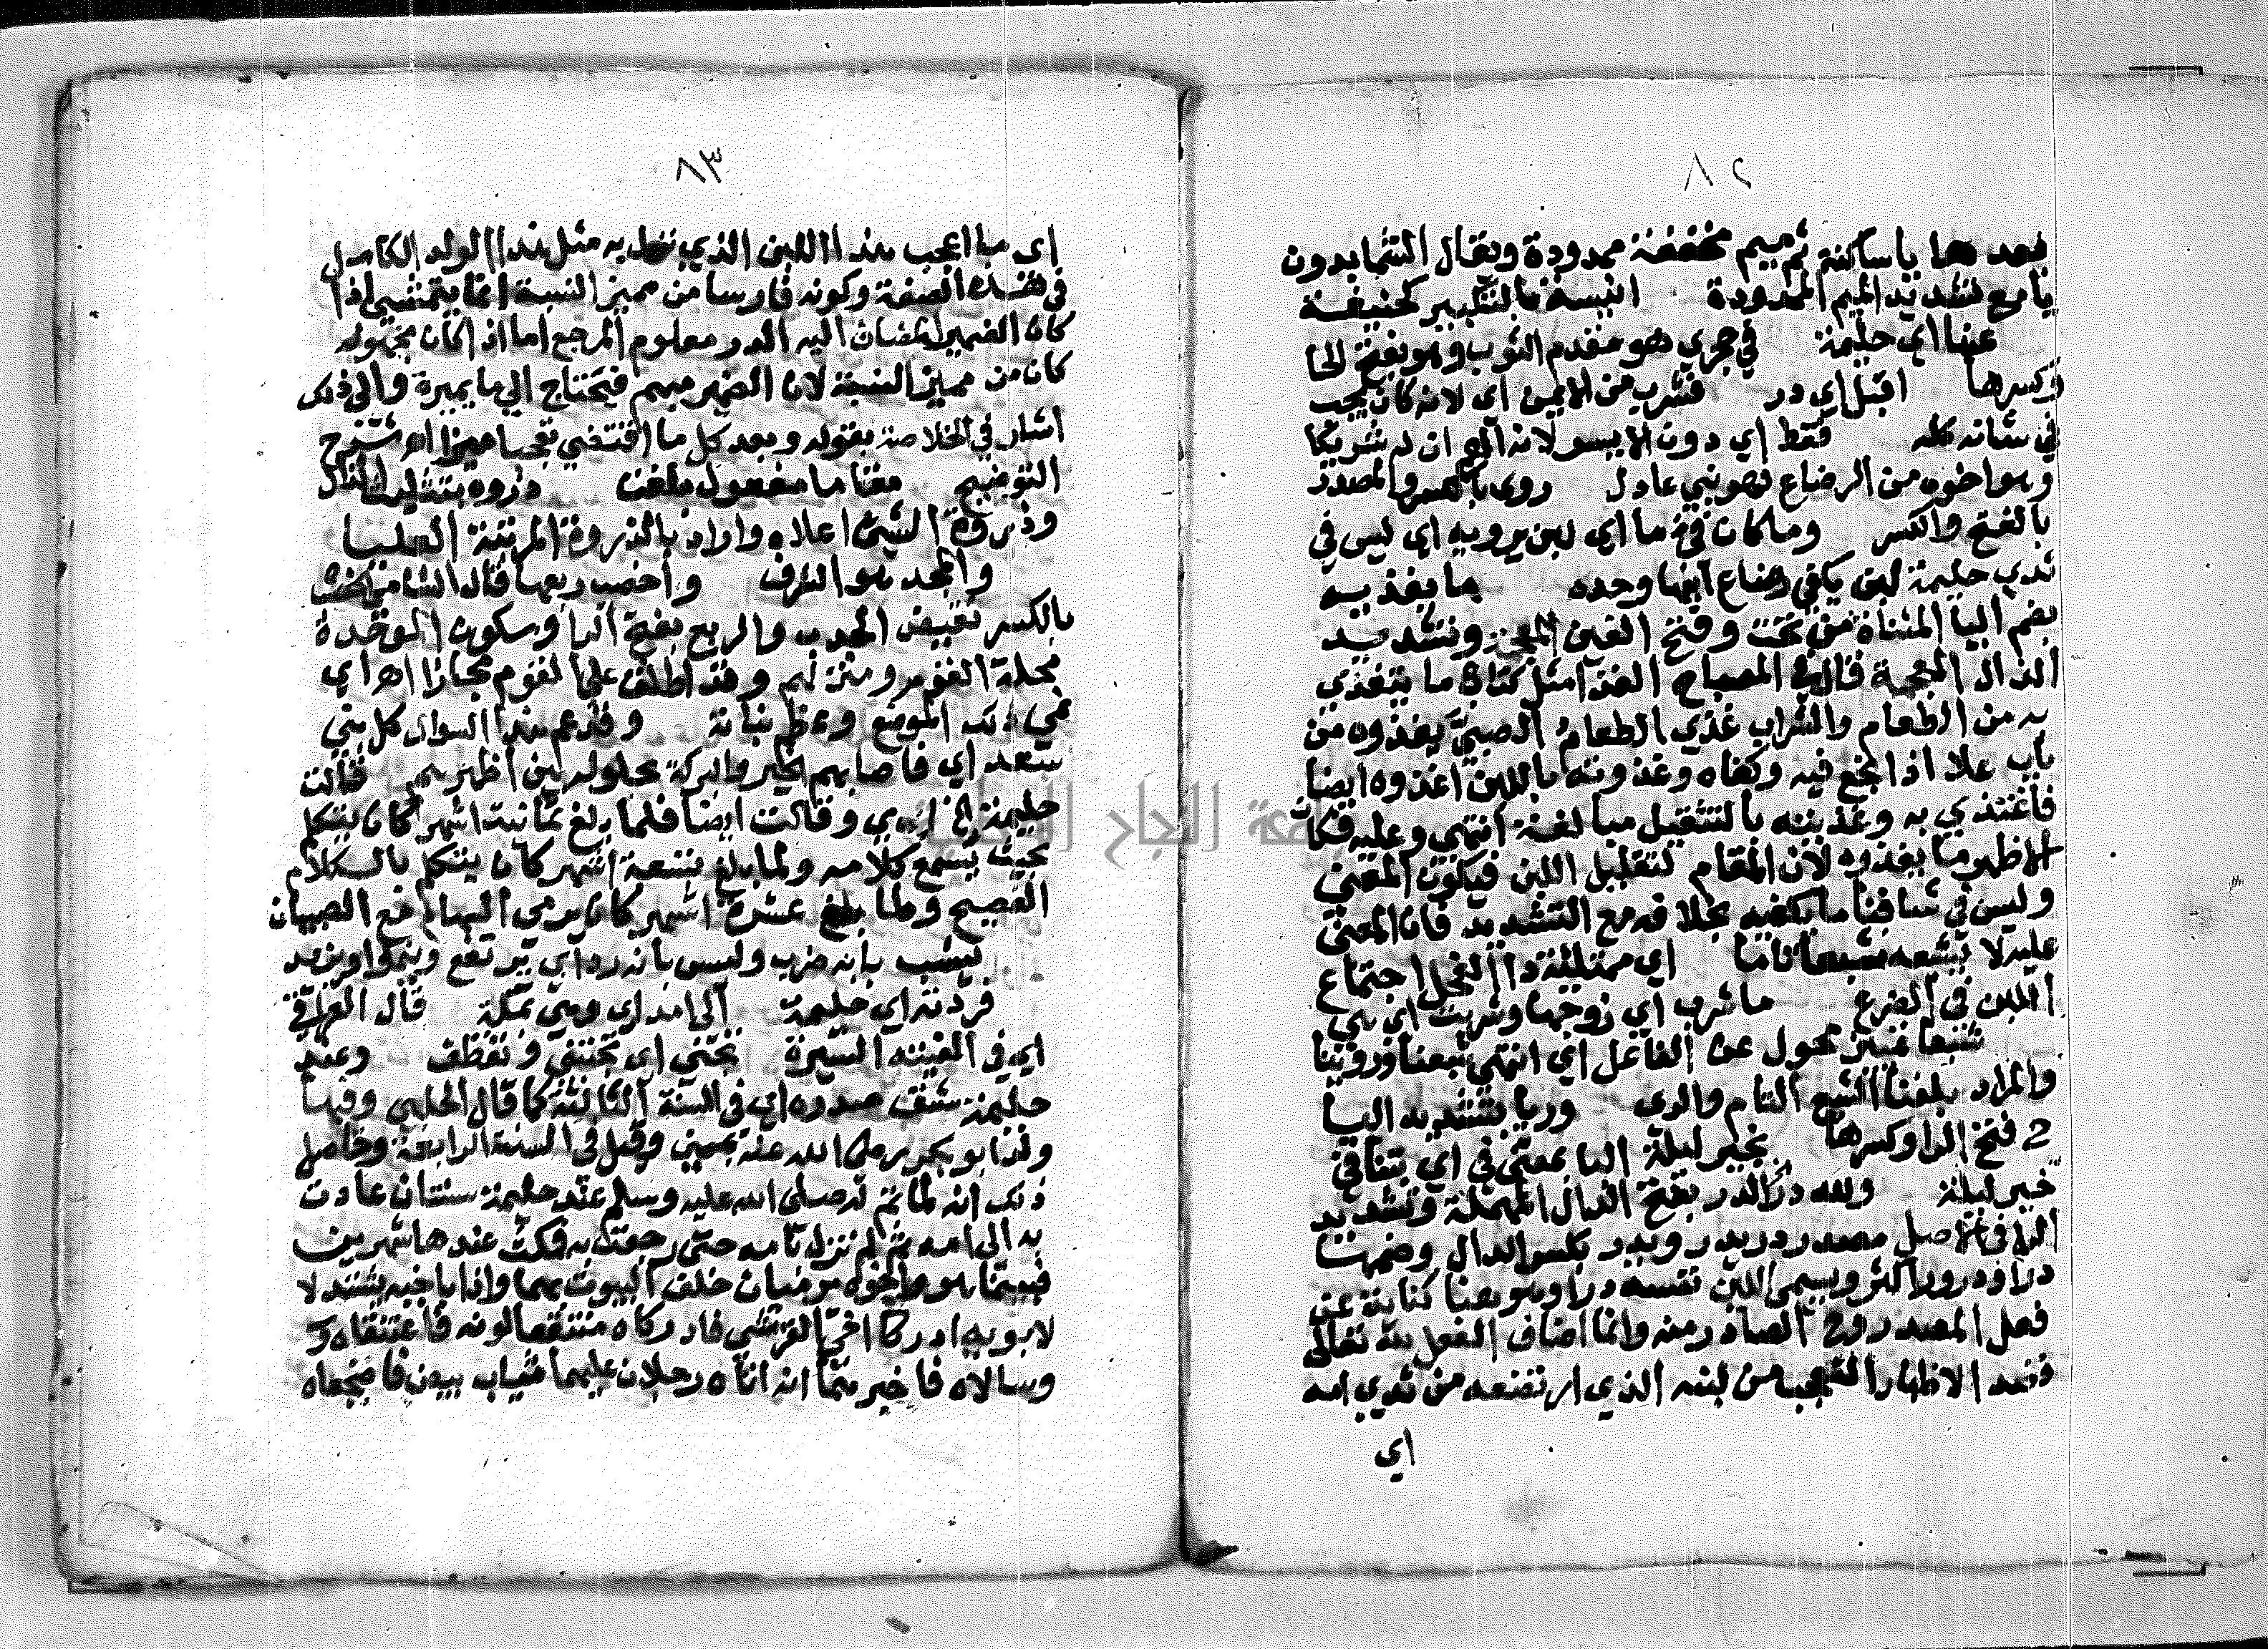 ٨٢
فبعدها ياساكنة ثم ميم مخففة ممدودة ويقال الشما بدون
يا مع تشديد الميم الممدودة انيسة بالتكبير كحنيفة
عنها اي حليمة في حجري هو مقدم الثوب وهو بفتح الحا
وكسرها اقبل اي در فشرب من الايمن اي لانه كان يحب
في شانه كله فقط اي دون الايسر لانه الهم ان له شريكا
وهو اخوه من الرضاع فهو نبي عادل روى بالكسر والمصدر
بالفتح والكسر وما كان في ما اي لبن يرويه اي ليس في
ثدي حليمة لبن يكفي رضاع ابنها وحده ما يغذيه
بضم اليا المثناة من تحت وفتح الغين المعجمة وتشديد
الذال المعجمة قال في المصباح الغذا مثل كتاب ما يتغذي
به من الطعام والشراب غذي الطعام الصبي يغذوه من
باب علا اذا نجع فيه وكفاه وغذوته باللبن اغذوه ايضا
فاغتذي به وغذيته بالتثقيل مبالغة انتهى وعليه فكان
الاظهر ما يغذوه لان المقام لتقليل اللبن فيكون المعنى
وليس في شافنا ما يكفيه بخلافه مع التشديد فان المعنى
عليه لا يشبعه شبعا تاما اي ممتلئة دا الفحل اجتماع
اللبن في الضرع ما شرب اي زوجها وشربت اي هي
شبعا تمييز محول عن الفاعل اي انتهى شبعنا وروينا
والمراد بلغنا الشبع التام والري وريا بتشديد اليا
2 فتح الرا وكسرها بخير ليلة البا بمعنى في اي بتنا في
خير ليلة ولله در الدر بفتح الدال المهملة وتشديد
الرا في الاصل مصدر در يدر ويدر بكسر الدال وضمها
درا ودرورا كثر ويسمى اللبن نفسه درا وهو هنا كناية عن
فعل الممدوح الصادر منه وانما اضاف الفعل لله تعالى
قصد الاظهار التعجب من لبنه الذي ارتضعه من ثدي امه
اي
٨٣
اي ما اعجب هذا اللبن الذي تغذى به مثل هذا الولد الكامل
في هذه الصفة وكونه فارسا من مميز النسبة انما يتمشى اذا
كان الضمير المضاف اليه الدر معلوم المرجع اما اذا كان مجهوله
كان من مميز النسبة لان الضمير مبهم فيحتاج الى ما يميزه والى ذلك
اشار في الخلاصة بقوله وبعد كل ما اقتضي تعجبا ميزا اه شرح
التوضيح مقاما مفعول بلغت ذروه بتثليث الذال
وذروة الشئ اعلاه واراد بالذروة المرتبة العليا
والمجد هو الشرف واخصب ربعها قال الشامي الخصب
بالكسر نقيض الجدب والربع بفتح الرا وسكون الموحدة
محلة القوم ومنزلهم وقد اطلق على القوم مجازا اه اي
نمى ذلك الموضع وعظم نباته وقد عم هذا السوال كل بني
سعد اي فاصابهم الخير والبركة بحلوله بين اظهرهم قالت
حليمة الخ اي وقالت ايضا فلما بلغ ثمانية اشهر كان يتكلم
بحيث يسمع كلامه ولما بلغ تسعة اشهر كان يتكلم بالكلام
الفصيح ولما بلغ عشرة اشهر كان يرمي السهام مع الصبيان
ليشب بابه ضرب وليس بابه رد اي يرتفع وينموا ويزيد
فردته اي حليمة الى امه اي وهي بمكة قال العراقي
اي في الفيته السيرة تجتنى اي تجتنى وتقطف وعند
حليمة شق صدره اي في السنة الثالثة كما قال الحلبي وفيها
ولد ابو بكر رضي الله عنه بمبين وقيل في السنة الرابعة وحاصل
ذلك انه لما تم له صلى الله عليه وسلم عند حليمة سنتان عادت
به الى امه ثم لم تزل بامه حتى رجعت به فمكث عندها شهرين
فبينما هو واخوه يرضيان خلف البيوت بهما واذا باخيه يشتد لا
لابويه ادركا اخي القرشي فادركاه منتقعا لونه فاعتنقاه
وسالاه فاخبرهما انه اتاه رجلان عليهما ثياب بيض فاضجعاه